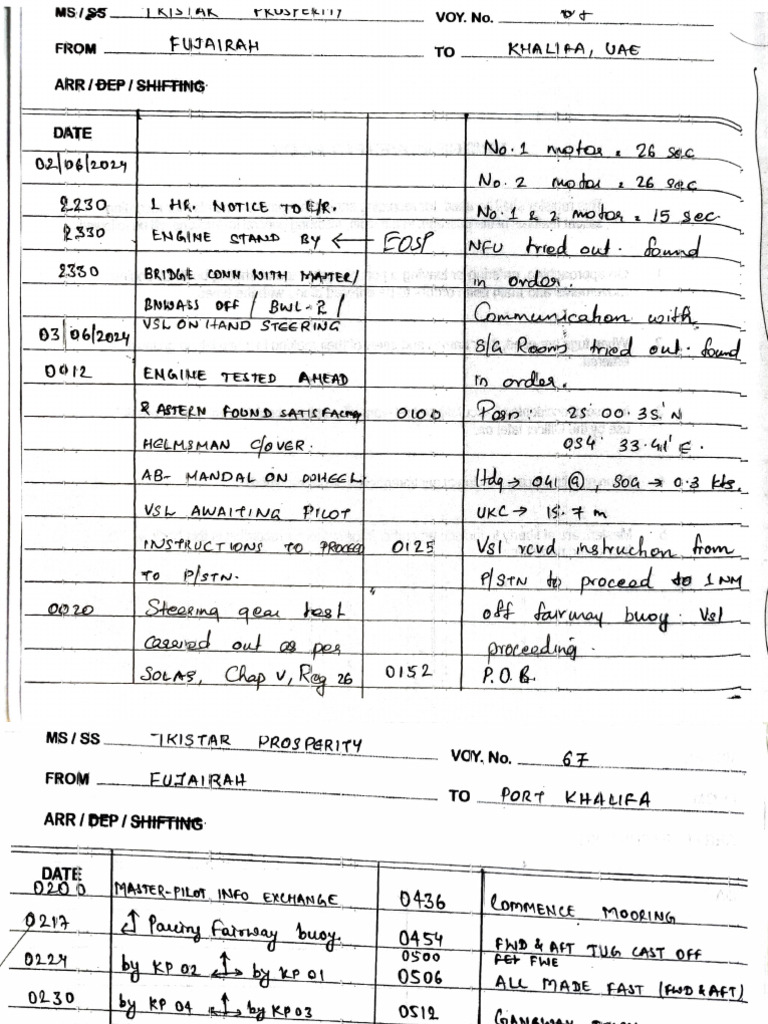 MS / SS TRISTAR PROSPERITY VOY. No.
FROM FUJAIRAH TO KHALIFA, UAE
ARR / DEP / SHIFTING
DATE
02/06/2024
2230 1 HR. NOTICE TO E/R.
2330 ENGINE STAND BY ← EOSP
2330 BRIDGE CONN WITH MASTER/
BNWASS OFF / BWL-R /
VSL ON HAND STEERING
03/06/2024
0012 ENGINE TESTED AHEAD
& ASTERN FOUND SATISFACTORY
HELMSMAN C/OVER.
AB- MANDAL ON WHEEL
VSL AWAITING PILOT
INSTRUCTIONS TO PROCEED
TO P/STN.
0020 Steering gear test
carried out as per
SOLAS, Chap V, Reg 26
No. 1 motor = 26 sec
No. 2 motor = 26 sec
No. 1 & 2 motor = 15 sec
NFU tried out. found
in order.
Communication with
S/G Room tried out. found
in order.
0100 Posn 25° 00.35' N
054° 33.41' E.
Hdg → 041 (G), SOG → 0.3 kts.
UKC → 15.7 m
0125 Vsl rcvd instruction from
P/STN to proceed to 1 NM
off fairway buoy. Vsl
proceeding.
0152 P.O.B.
MS / SS TRISTAR PROSPERITY VOY. No. 67
FROM FUJAIRAH TO PORT KHALIFA
ARR / DEP / SHIFTING
DATE
0200 MASTER-PILOT INFO EXCHANGE
0217 Passing Fairway buoy.
0224 by KP 02 by KP 01
0230 by KP 04 by KP 03
0436 COMMENCE MOORING
0454 FWD & AFT TUG CAST OFF
0500 FWE
0506 ALL MADE FAST (FWD & AFT)
0512 GANGWAY